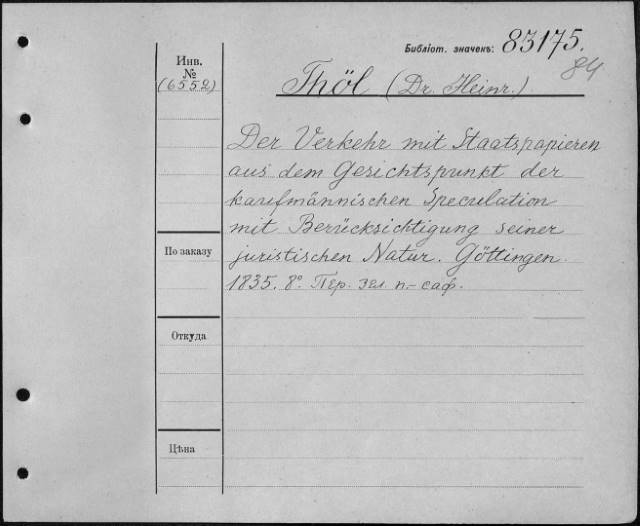 Библіот. значекъ: 83175.
84
Инв.
№
(6552)
Thöl (Dr. Heinr.)
Der Verkehr mit Staatspapieren
aus dem Gesichtspunkt der
kaufmännischen Speculation
mit Berücksichtigung seiner
juristischen Natur. Göttingen.
1835. 8º. Пер. зел. п.-саф.
По заказу
Откуда
Цѣна